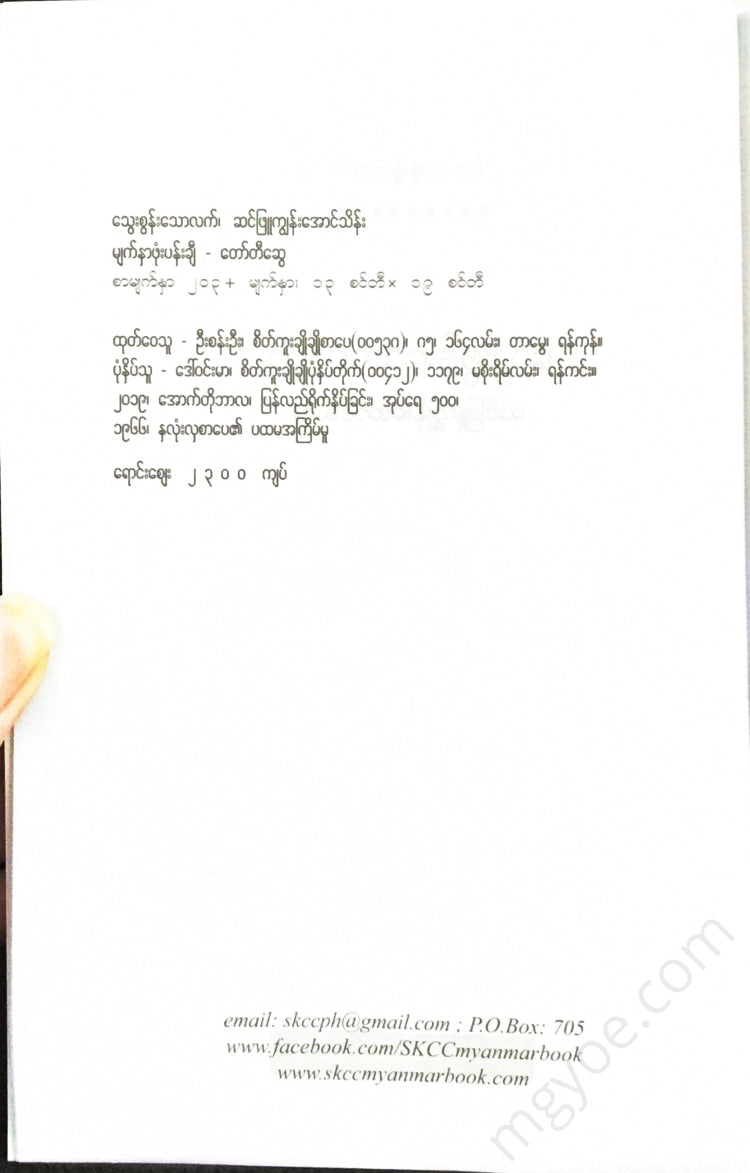 သွေးစွန်းသောလက်၊ ဆင်ဖြူကျွန်းအောင်သိန်း
မျက်နှာဖုံးပန်းချီ - တော်တီဆွေ
စာမျက်နှာ ၂၀၃ + မျက်နှာ၊ ၁၃ စင်တီ × ၁၉ စင်တီ
ထုတ်ဝေသူ - ဦးစန်းဦး၊ စိတ်ကူးချိုချိုစာပေ(၀၀၅၃၈)၊ ဂ၅၊ ၁၆၄လမ်း၊ တာမွေ၊ ရန်ကုန်။
ပုံနှိပ်သူ - ဒေါ်ဝင်းမာ၊ စိတ်ကူးချိုချိုပုံနှိပ်တိုက်(၀၀၄၁၂)၊ ၁၁၇၉၊ မစိုးရိမ်လမ်း၊ ရန်ကင်း။
၂၀၁၉၊ အောက်တိုဘာလ၊ ပြန်လည်ရိုက်နှိပ်ခြင်း၊ အုပ်ရေ ၅၀၀၊
၁၉၆၆၊ နှလုံးလှစာပေ၏ ပထမအကြိမ်မူ
ရောင်းဈေး ၂၃၀၀ ကျပ်
email: skccph@gmail.com ; P.O.Box: 705
www.facebook.com/SKCCmyanmarbook
www.skccmyanmarbook.com
mgyoe.com